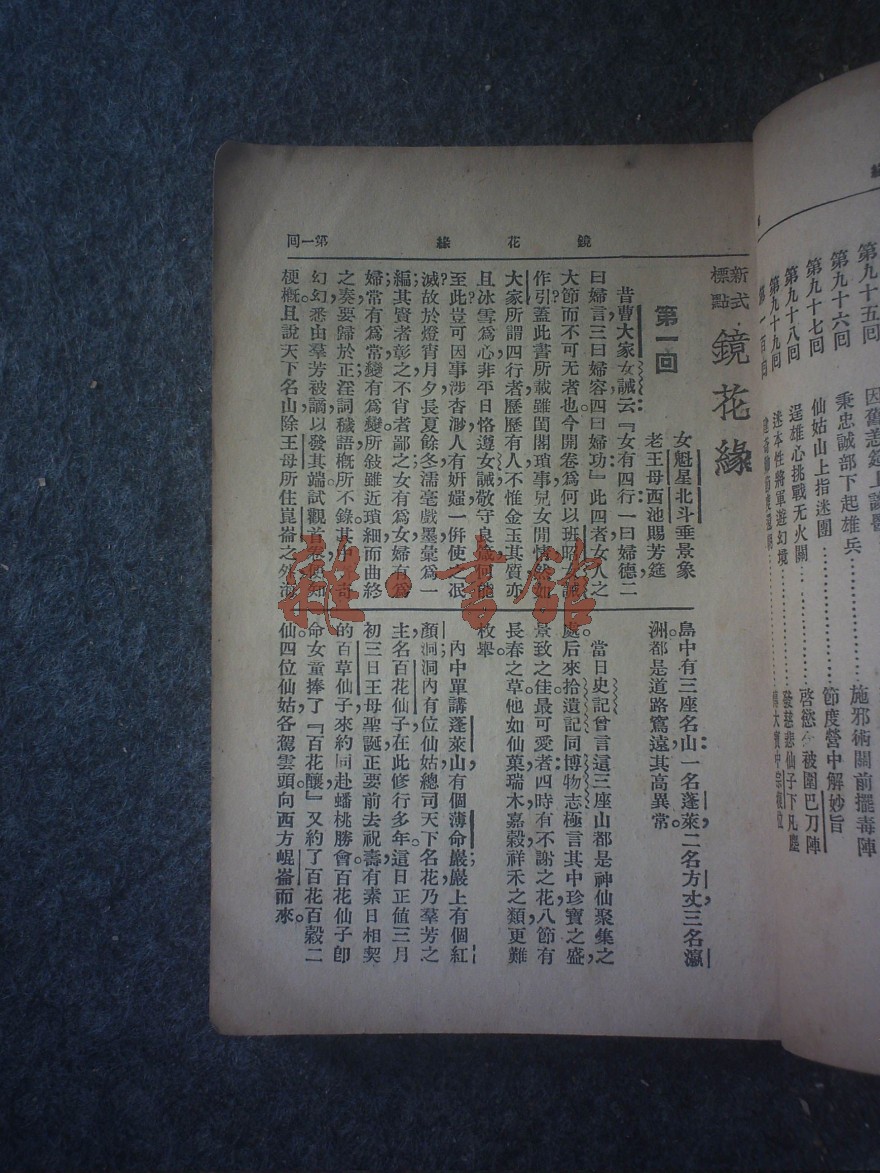 第九十五回
第九十六回 秉忠誠部下起雄兵 施邪術關前擺毒陣
第九十七回 仙姑山上指迷團 節度營中解妙旨
第九十八回 逞雄心挑戰无火關 啓慾 被圍巴刀陣
第九十九回 迷本性將軍遊幻境 發慈悲仙子下凡塵
鏡花緣 第一回
新式標點 鏡花緣
第一回
女魁星北斗垂景象
老王母西池賜芳筵
昔曹大家女誡云:『女有四行,一曰婦德,二
曰婦言,三曰婦容,四曰婦功。』此四者,女人之
大節,而不可无者也。今開卷為何以班昭女誡
作引?蓋此書所載,雖閨閣瑣事,兒女閒情,然如
大家所謂四行者,歷歷有人,不惟金玉其質,亦
且冰雪為心,非平日恪遵女誡,敬守良箴,何能
至此?豈可因事涉杳渺,人有妍媸,一倂使之泯
滅?故於燈宵月夕,長夏餘冬,濡毫戲墨,彙為一
編;其賢者彰之,不肖者鄙之;女有為女,婦有為
婦;常有為常,變有為變。所敍雖近瑣細,而曲終
之奏,要歸於正,淫詞穢語,概所不錄。其中奇
幻幻,悉由羣芳被謫,以發其端,試觀首卷,便知
梗概。且說天下名山,除王母所住崑崙之外,海
島中有三座名山:一名蓬萊,二名方丈,三名瀛
洲。都是道路窵遠,其高異常。
當日史記曾言這三座山都是神仙聚集之
處。后來拾遺記同博物志極言其中珍寶之盛,
景致之佳。最可愛者,四時有不謝之花,八節有
長春之草。他如仙菓、瑞木、嘉穀、祥禾之類,更難
枚舉。
內中單講蓬萊山有個薄命巖,巖上有個紅
顏洞,洞內有位仙姑,總司天下名花,乃羣芳之
主,名百花仙子,在此修行多年。這日正値三月
初三日王母聖誕,正要前去祝壽,有素日相契
的百草仙子來約同赴蟠桃勝會。百花仙子卽
命女童捧了『百花釀』,又約了百花、百穀二
仙。四位仙姑,各駕雲頭,向西方崐崙而來。
雜·書館